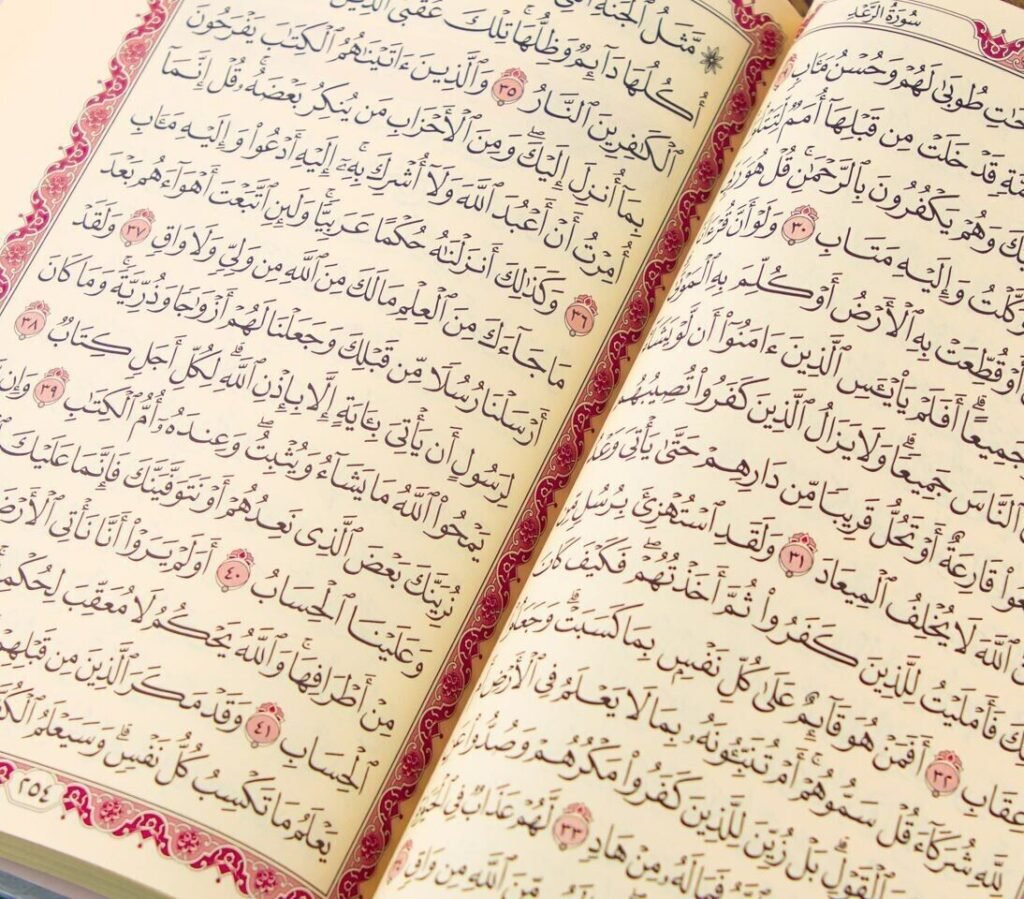 سُورَةُ الرَّعْدِ
طُوبَىٰ لَهُمْ وَحُسْنُ مَـَٔابٍ
قَدْ خَلَتْ مِن قَبْلِهَآ أُمَمٌ
وَهُمْ يَكْفُرُونَ بِٱلرَّحْمَٰنِ ۚ قُلْ هُوَ
وَإِلَيْهِ مَتَابِ ٣٠ وَلَوْ أَنَّ
أَوْ قُطِّعَتْ بِهِ ٱلْأَرْضُ أَوْ كُلِّمَ بِهِ
جَمِيعًا ۗ أَفَلَمْ يَا۟يْـَٔسِ ٱلَّذِينَ ءَامَنُوٓا۟ أَن لَّوْ
ٱلنَّاسَ جَمِيعًا ۗ وَلَا يَزَالُ ٱلَّذِينَ كَفَرُوا۟ تُصِيبُهُم
قَارِعَةٌ أَوْ تَحُلُّ قَرِيبًا مِّن دَارِهِمْ حَتَّىٰ يَأْتِىَ
ٱللَّهَ لَا يُخْلِفُ ٱلْمِيعَادَ ٣١ وَلَقَدِ ٱسْتُهْزِئَ بِرُسُلٍ
فَأَمْلَيْتُ لِلَّذِينَ كَفَرُوا۟ ثُمَّ أَخَذْتُهُمْ ۖ فَكَيْفَ كَانَ
عِقَابِ ٣٢ أَفَمَنْ هُوَ قَآئِمٌ عَلَىٰ كُلِّ نَفْسٍۭ بِمَا كَسَبَتْ ۗ
لِلَّهِ شُرَكَآءَ قُلْ سَمُّوهُمْ ۚ أَمْ تُنَبِّـُٔونَهُۥ بِمَا لَا يَعْلَمُ فِى ٱلْأَرْضِ
ٱلْقَوْلِ ۗ بَلْ زُيِّنَ لِلَّذِينَ كَفَرُوا۟ مَكْرُهُمْ وَصُدُّوا۟
فَمَا لَهُۥ مِنْ هَادٍ ٣٣ لَّهُمْ عَذَابٌ فِى
مِّنَ ٱللَّهِ مِن وَاقٍ
مَّثَلُ ٱلْجَنَّةِ
أُكُلُهَا دَآئِمٌ وَظِلُّهَا ۚ تِلْكَ عُقْبَى ٱلَّذِينَ
ٱلْكَٰفِرِينَ ٱلنَّارُ ٣٥ وَٱلَّذِينَ ءَاتَيْنَٰهُمُ ٱلْكِتَٰبَ يَفْرَحُونَ
بِمَآ أُنزِلَ إِلَيْكَ ۖ وَمِنَ ٱلْأَحْزَابِ مَن يُنكِرُ بَعْضَهُۥ ۚ قُلْ إِنَّمَآ
أُمِرْتُ أَنْ أَعْبُدَ ٱللَّهَ وَلَآ أُشْرِكَ بِهِۦٓ ۚ إِلَيْهِ أَدْعُوا۟ وَإِلَيْهِ مَـَٔابِ
٣٦ وَكَذَٰلِكَ أَنزَلْنَٰهُ حُكْمًا عَرَبِيًّا ۚ وَلَئِنِ ٱتَّبَعْتَ أَهْوَآءَهُم بَعْدَ
مَا جَآءَكَ مِنَ ٱلْعِلْمِ مَا لَكَ مِنَ ٱللَّهِ مِن وَلِىٍّ وَلَا وَاقٍ ٣٧ وَلَقَدْ
أَرْسَلْنَا رُسُلًا مِّن قَبْلِكَ وَجَعَلْنَا لَهُمْ أَزْوَٰجًا وَذُرِّيَّةً ۚ وَمَا كَانَ
لِرَسُولٍ أَن يَأْتِىَ بِـَٔايَةٍ إِلَّا بِإِذْنِ ٱللَّهِ ۗ لِكُلِّ أَجَلٍ كِتَابٌ ٣٨
يَمْحُوا۟ ٱللَّهُ مَا يَشَآءُ وَيُثْبِتُ ۖ وَعِندَهُۥٓ أُمُّ ٱلْكِتَٰبِ ٣٩ وَإِن
نُرِيَنَّكَ بَعْضَ ٱلَّذِى نَعِدُهُمْ أَوْ نَتَوَفَّيَنَّكَ فَإِنَّمَا عَلَيْكَ
وَعَلَيْنَا ٱلْحِسَابُ ٤٠ أَوَلَمْ يَرَوْا۟ أَنَّا نَأْتِى ٱلْأَرْضَ
مِنْ أَطْرَافِهَا ۚ وَٱللَّهُ يَحْكُمُ لَا مُعَقِّبَ لِحُكْمِهِۦ
ٱلْحِسَابِ ٤١ وَقَدْ مَكَرَ ٱلَّذِينَ مِن قَبْلِهِمْ
يَعْلَمُ مَا تَكْسِبُ كُلُّ نَفْسٍ ۗ وَسَيَعْلَمُ
٢٥٤